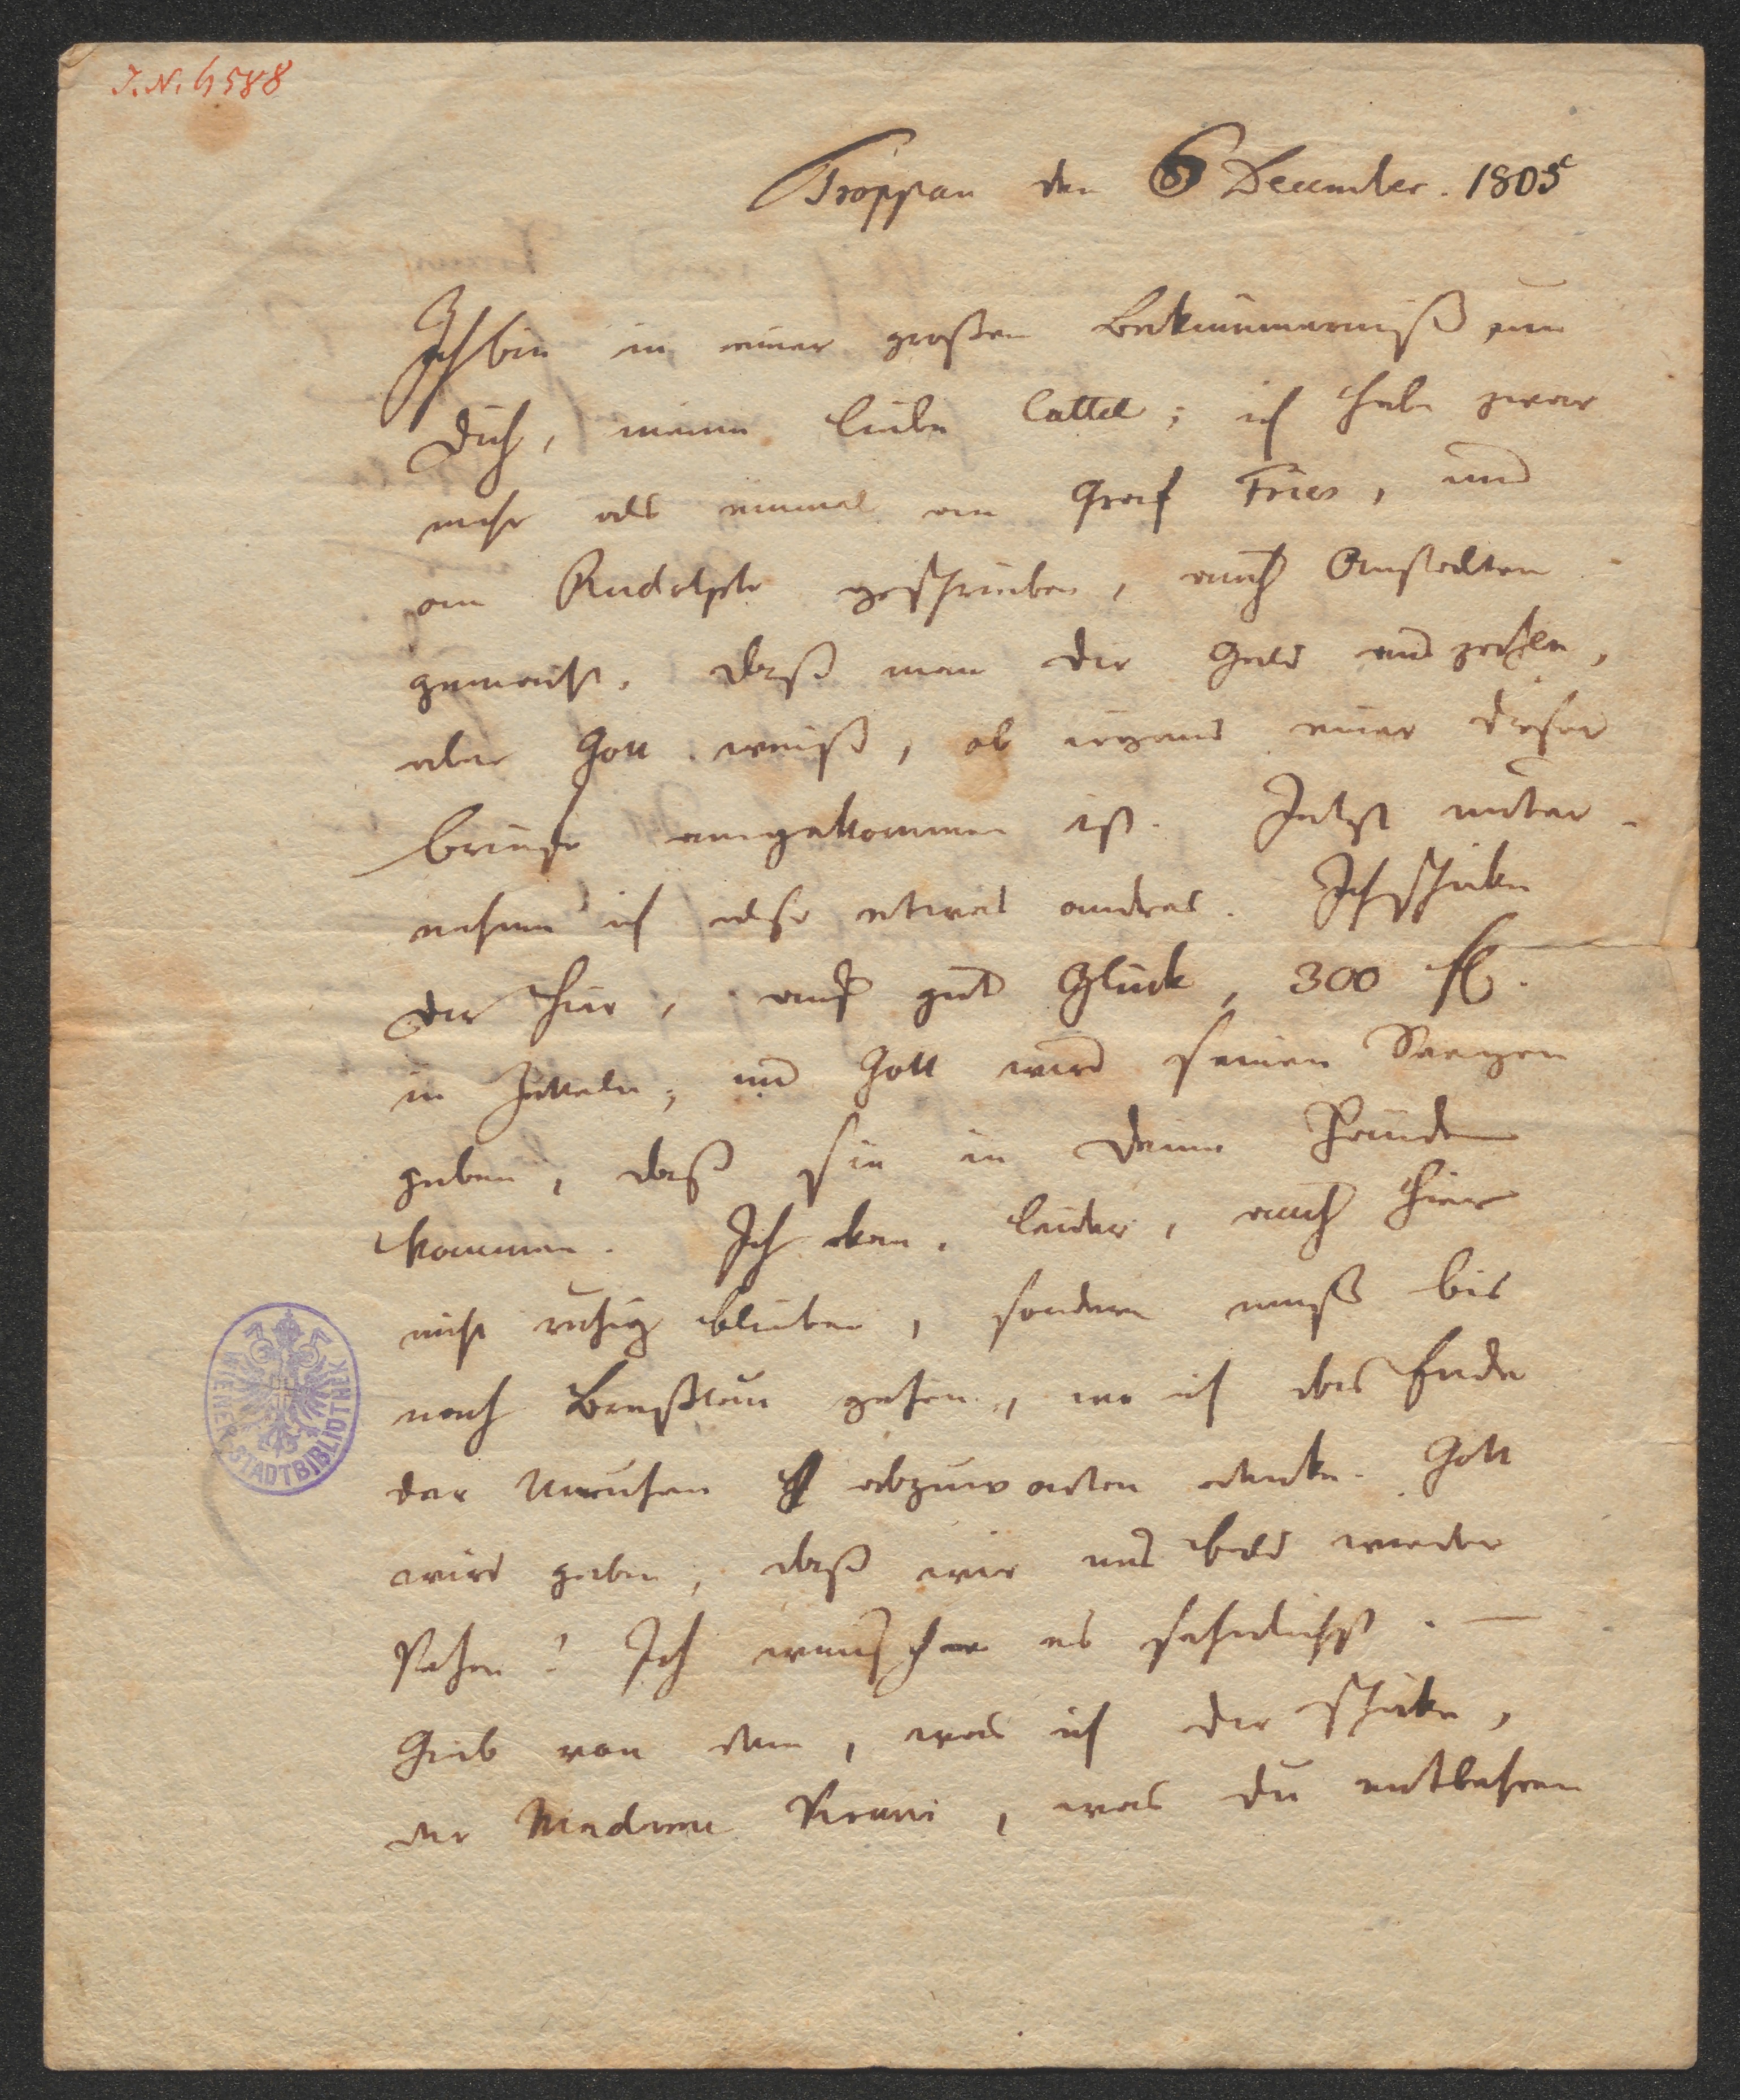 J. N. 4588
Troppau den 6 December. 1805
Ich bin in einer großen Bekümmerniß um
Dich, meine liebe Cattel; ich habe zwar
mehr als einmal an Graf Fries, und
an Rudolph geschrieben, auch Anstalten
gemacht, daß man dir Geld auszahle,
aber Gott weiß, ob irgend einer dieser
Briefe angekommen ist. Jetzt unter-
nehme ich also etwas andres. Ich schicke
Dir hier, auf gut Glück, 300 fl.
in Zetteln; und Gott wird seinen Seegen
geben, daß sie in Deine Hände
kommen. Ich kan, leider, auch hier
nicht ruhig bleiben, sondern muß bis
nach Breßlau gehen, wo ich das Ende
der Unruhen abzuwarten denke. Gott
wird geben, daß wir uns bald wieder
sehen! Ich wünsche es sehnlichst. —
Gieb von dem, was ich dir schicke,
der Madame, was du entbehren
WIENER STADTBIBLIOTHEK